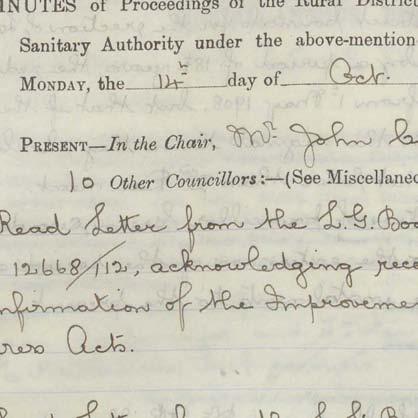 INUTES of Proceedings of the Rural District
Sanitary Authority under the above-mention
MONDAY, the 14th day of Oct.
PRESENT—In the Chair, Mr. John
10 Other Councillors:—(See Miscellaneo
Read Letter from the L.G. Boa
12668/112, acknowledging rece
nfirmation of the Improveme
ress Acts.